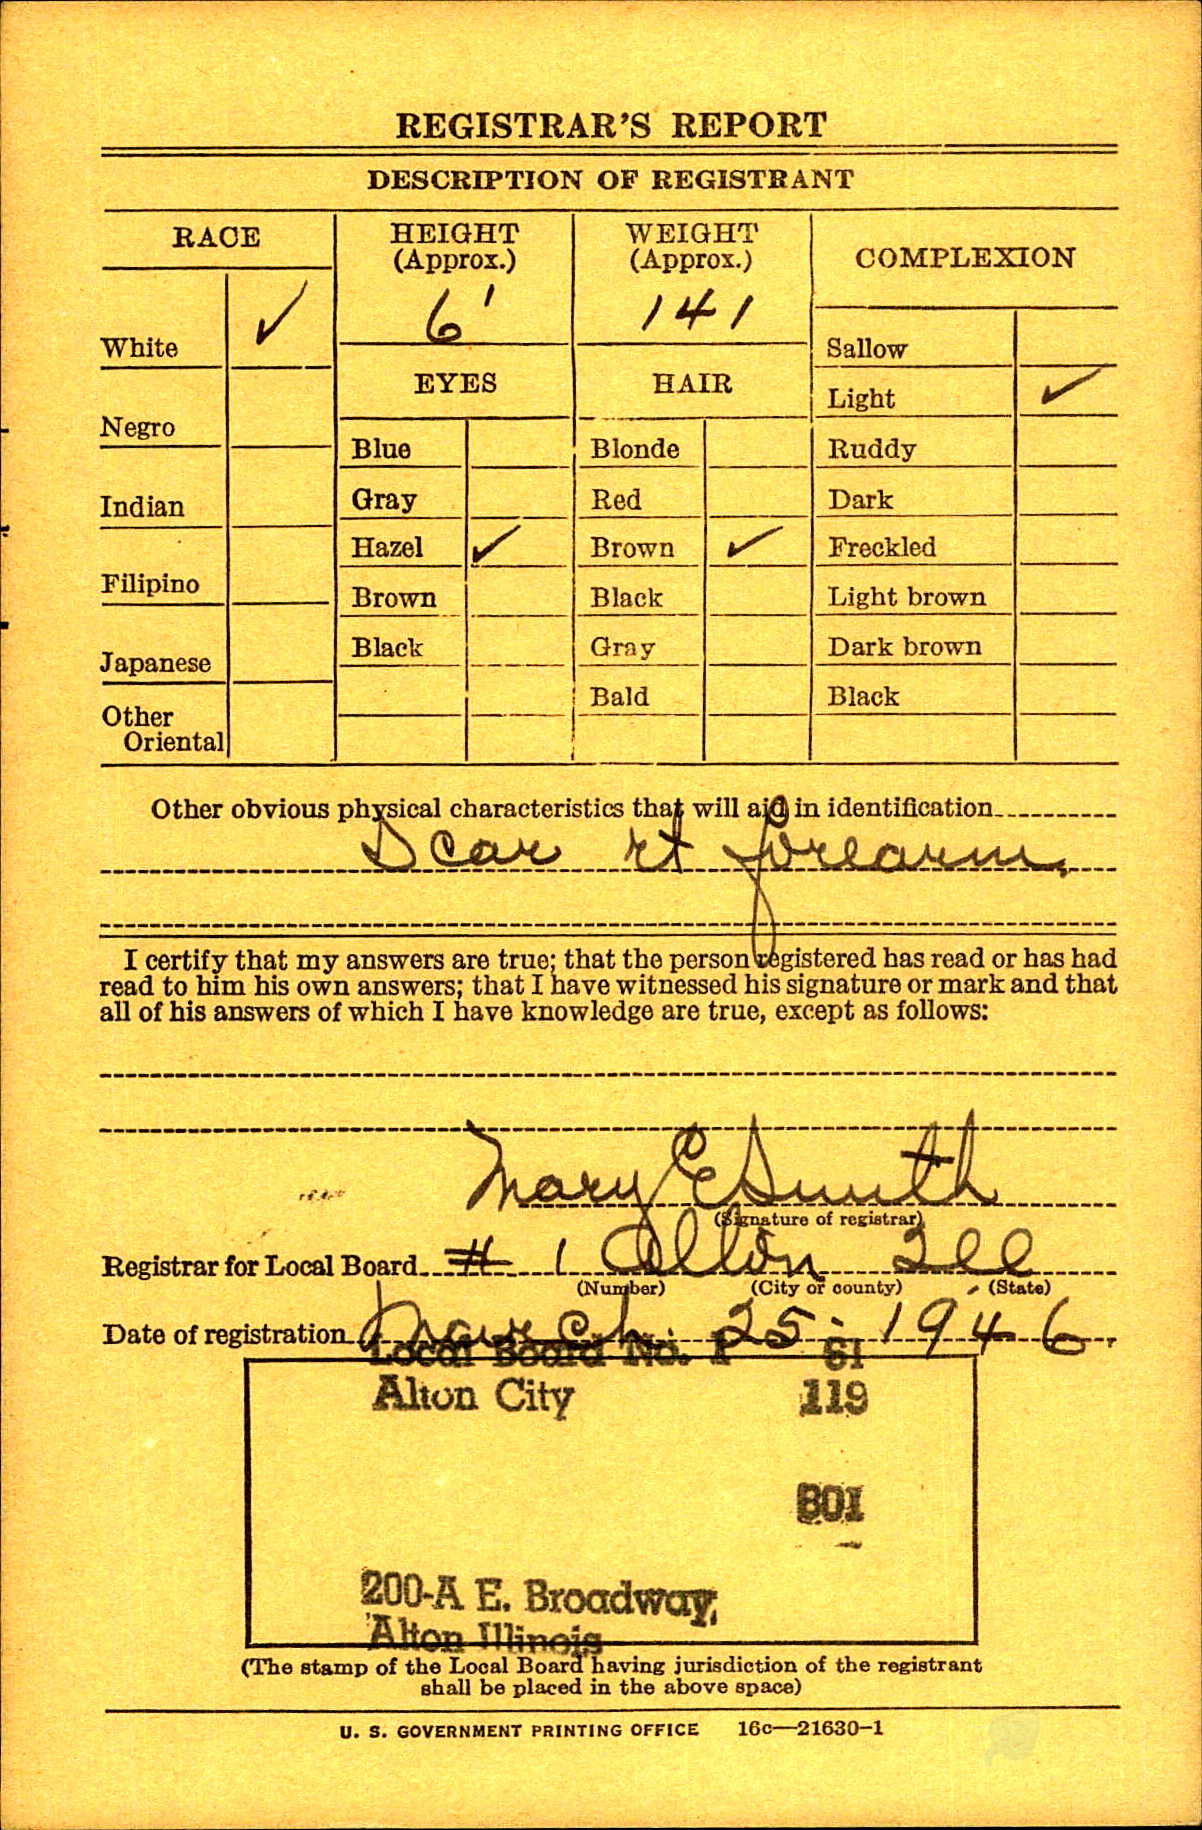 REGISTRAR'S REPORT
DESCRIPTION OF REGISTRANT
RACE
White ✓
Negro
Indian
Filipino
Japanese
Other
Oriental
HEIGHT
(Approx.)
6'
EYES
Blue
Gray
Hazel ✓
Brown
Black
WEIGHT
(Approx.)
141
HAIR
Blonde
Red
Brown ✓
Black
Gray
Bald
COMPLEXION
Sallow
Light ✓
Ruddy
Dark
Freckled
Light brown
Dark brown
Black
Other obvious physical characteristics that will aid in identification
Scar rt forearm.
I certify that my answers are true; that the person registered has read or has had
read to him his own answers; that I have witnessed his signature or mark and that
all of his answers of which I have knowledge are true, except as follows:
Mary E Smith
(Signature of registrar)
Registrar for Local Board # 1 Alton Ill
(Number) (City or county) (State)
Date of registration March 25 - 1946.
Local Board No. 1 61
Alton City 119
801
200-A E. Broadway,
Alton Illinois
(The stamp of the Local Board having jurisdiction of the registrant
shall be placed in the above space)
U. S. GOVERNMENT PRINTING OFFICE 16c—21630-1